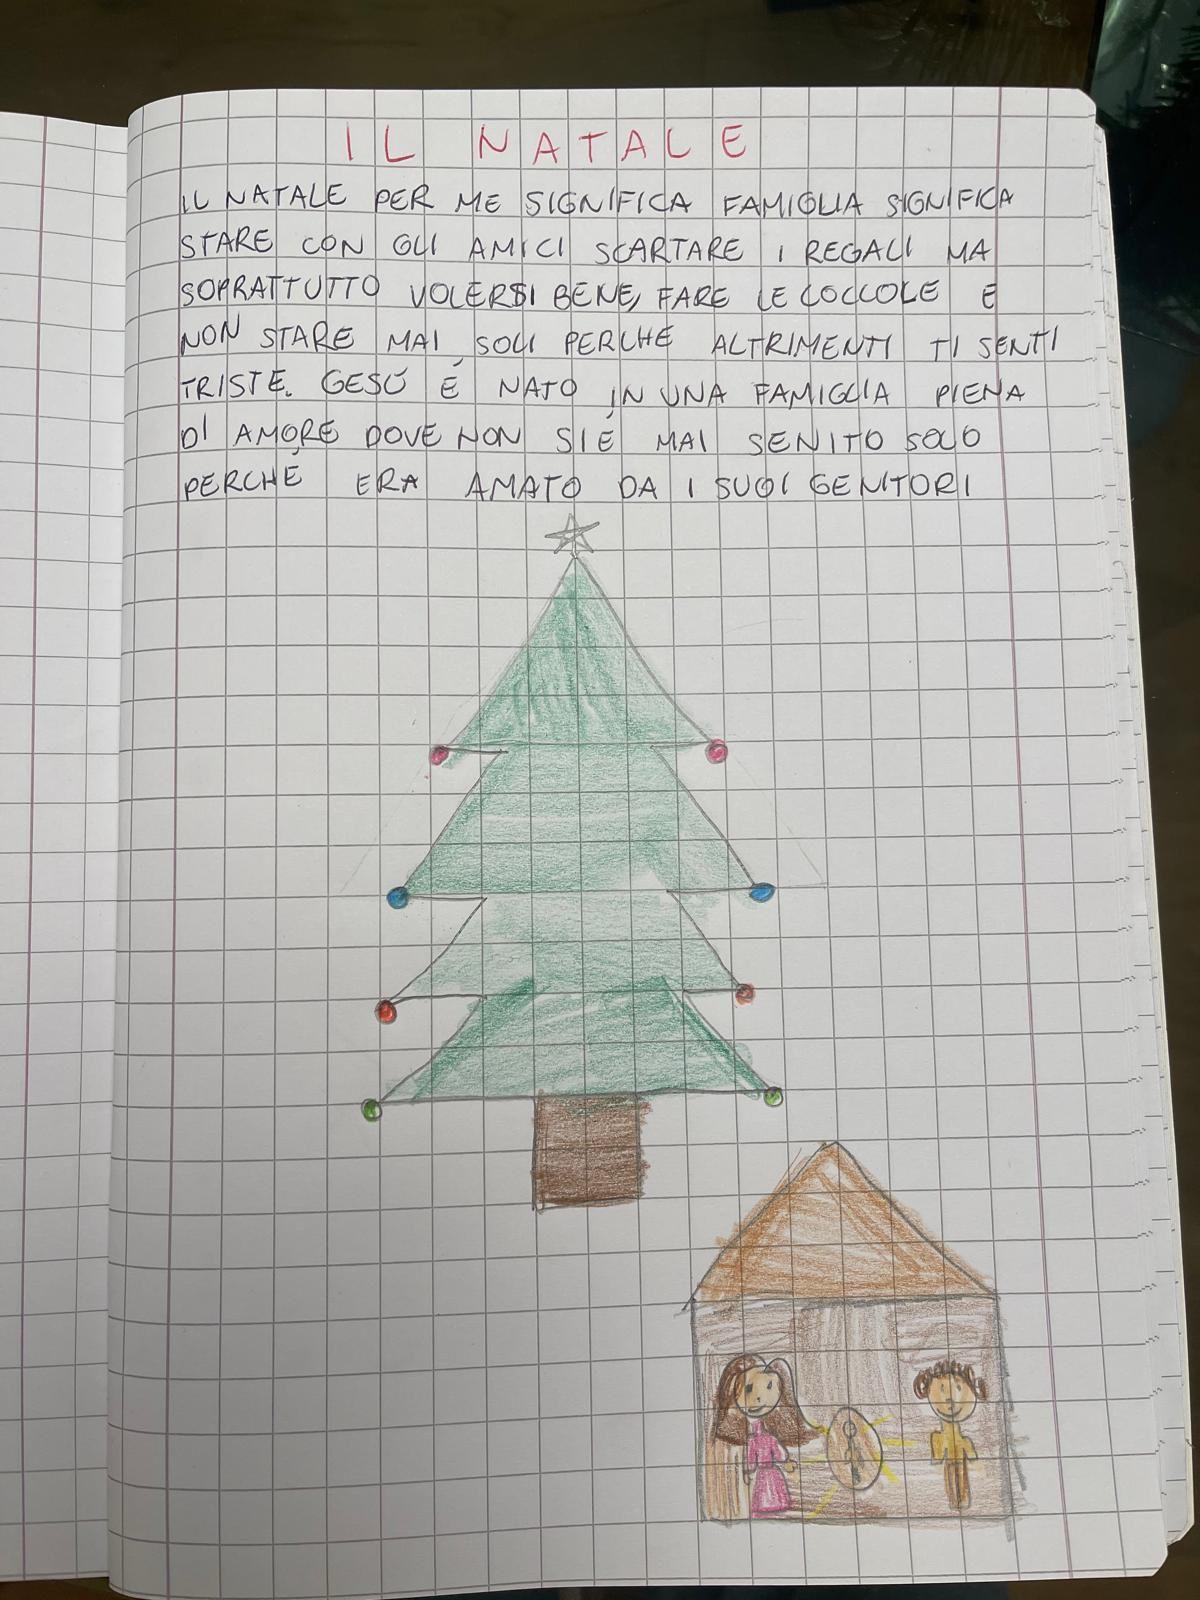 IL NATALE
IL NATALE PER ME SIGNIFICA FAMIGLIA SIGNIFICA
STARE CON GLI AMICI SCARTARE I REGALI MA
SOPRATTUTTO VOLERSI BENE, FARE LE COCCOLE E
NON STARE MAI SOLI PERCHÉ ALTRIMENTI TI SENTI
TRISTE. GESÚ É NATO IN UNA FAMIGLIA PIENA
DI AMORE DOVE NON SIÉ MAI SENITO SOLO
PERCHÉ ERA AMATO DA I SUOI GENITORI